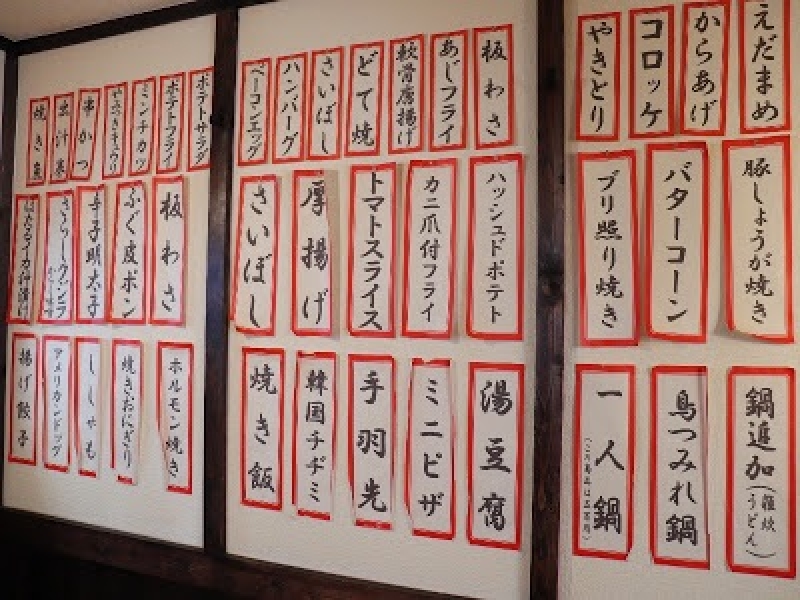 えだまめ
からあげ
コロッケ
やきとり
豚しょうが焼き
バターコーン
ブリ照り焼き
鍋追加(雑炊うどん)
鳥つみれ鍋
一人鍋
板わさ
あじフライ
軟骨唐揚げ
どて焼
さいぼし
ハンバーグ
ベーコンエッグ
ハッシュドポテト
カニ爪付フライ
トマトスライス
厚揚げ
さいぼし
湯豆腐
ミニピザ
手羽先
韓国チヂミ
焼き飯
ポテトサラダ
ポテトフライ
ミンチカツ
やみつきキュウリ
串かつ
出汁巻
焼き魚
板わさ
ふぐ皮ポン
辛子明太子
ホルモン焼き
焼きおにぎり
ししゃも
アメリカンドッグ
揚げ餃子